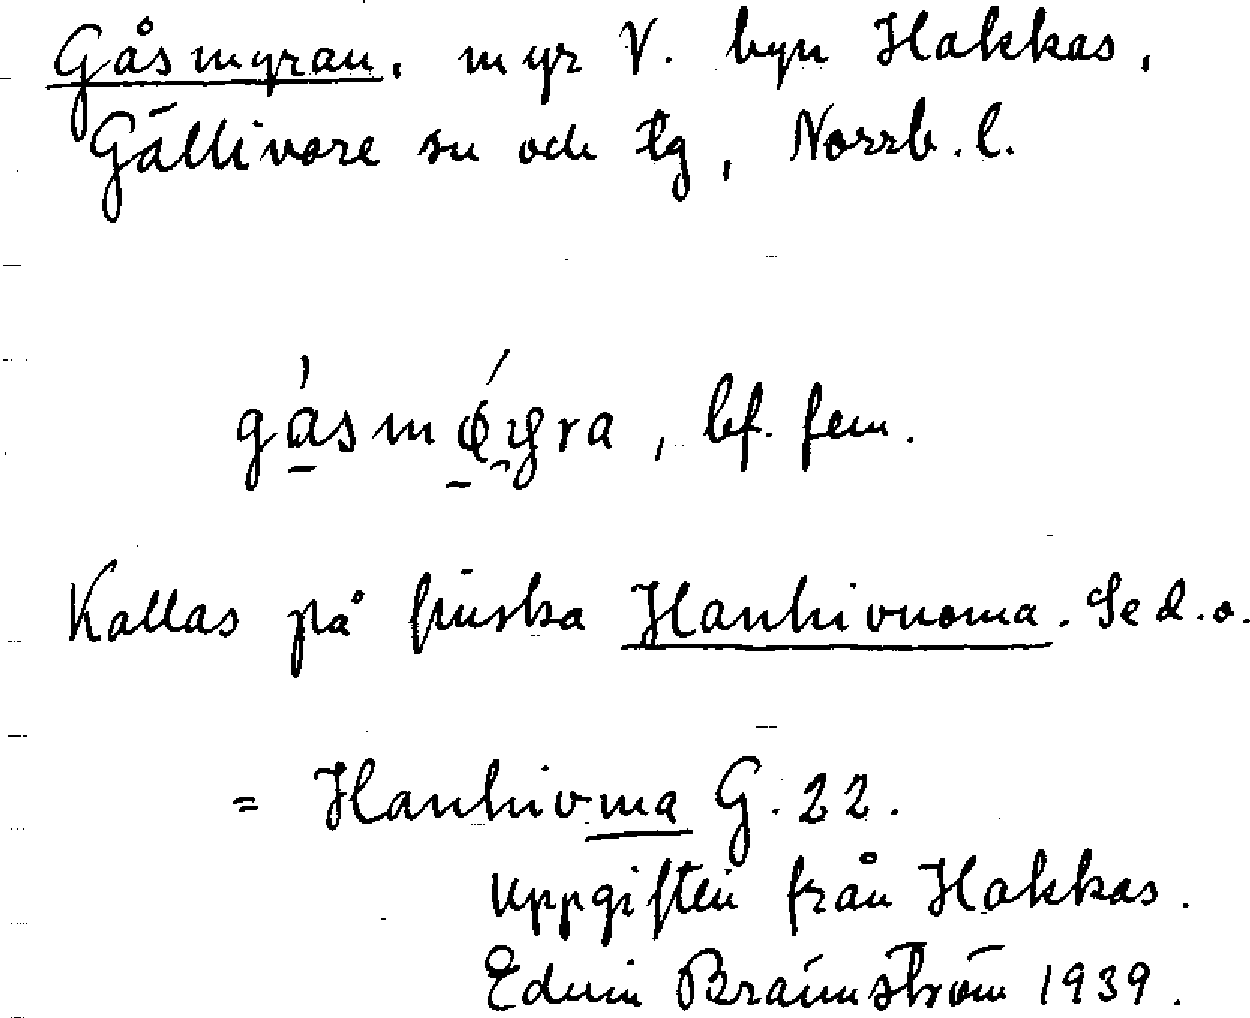 Gåsmyran, myr V. byn Hakkas,
Gällivare sn och tg, Norrb. l.
gåsmøyra, bf. fem.
Kallas på finska Hanhivuoma. Se d. o.
= Hanhivma G. 22.
Uppgiften från Hakkas.
Edvin Brännström 1939.